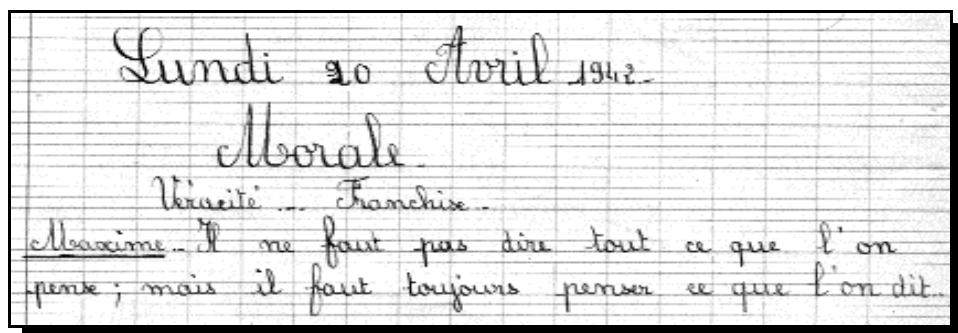 Lundi 20 Avril 1942.
Morale.
Véracité ... Franchise.
Maxime.. Il ne faut pas dire tout ce que l'on
pense ; mais il faut toujours penser ce que l'on dit..